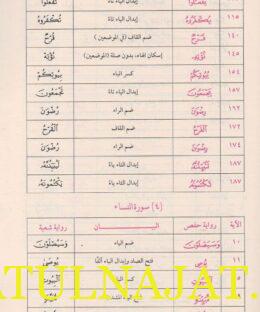 ١١٥ يُكْفَرُوهُ إبدال الياء تاء تُكْفَرُوهُ
١٤٠ قَرْحٌ ضم القاف (في الموضعين) قُرْحٌ
١٤٥ نُؤْتِهِ إسكان الهاء، بدون صلة (الموضعين) نُؤْتِهْ
١٥٤ بُيُوتِكُمْ كسر الباء بِيُوتِكُمْ
١٥٧ يَجْمَعُونَ إبدال الياء تاء تَجْمَعُونَ
١٦٢ رِضْوَانَ ضم الراء رُضْوَانَ
١٧٢ الْقَرْحُ ضم القاف الْقُرْحُ
١٧٤ رِضْوَانَ ضم الراء رُضْوَانَ
١٨٧ لَتُبَيِّنُنَّهُ إبدال التاء ياء لَيُبَيِّنُنَّهُ
١٨٧ تَكْتُمُونَهُ إبدال التاء ياء يَكْتُمُونَهُ
(٤) سورة النساء
الآية رواية حفص البيان رواية شعبة
١٠ وَسَيَصْلَوْنَ ضم الياء وَسَيُصْلَوْنَ
١١ يُوصِي فتح الصاد وإبدال الياء ألفًا يُوصَى
كسر الباء
ATULNAJAT.